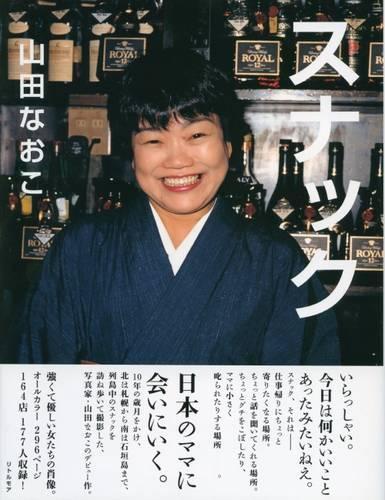 スナック
山田なおこ
ROYAL
ROYAL
ROYAL
12
ROYAL
12
いらっしゃい。
今日は何かいいこと
あったみたいねえ。
スナック、それは──
仕事帰りにちょっと
寄りたくなる場所。
ちょっと話を聞いてくれる場所。
ちょっとグチをこぼしたり、
ママに小さく
叱られたりする場所　。
日本のママに
会いにいく。
10年の歳月をかけ、
北は札幌から南は石垣島まで、
列島中のスナックを
訪ね歩いて撮影した、
写真家・山田なおこのデビュー作。
強くて優しい女たちの肖像。
オールカラー 296ページ
164店 177人収録!
リトルモア